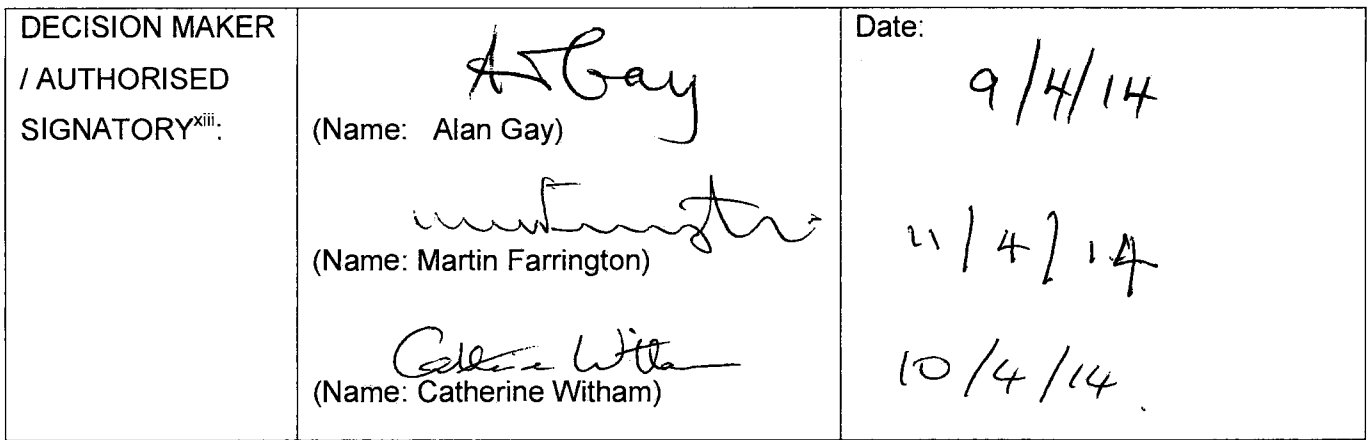 DECISION MAKER
/ AUTHORISED
SIGNATORYxiii:
A Gay
(Name: Alan Gay)
(Name: Martin Farrington)
Catherine Witham
(Name: Catherine Witham)
Date:
9/4/14
11/4/14
10/4/14.